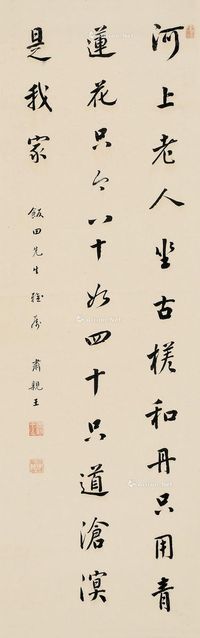 河上老人坐古槎和丹只用青
蓮花只今八十如四十只道滄溟
是我家
飯田先生雅属 肅親王